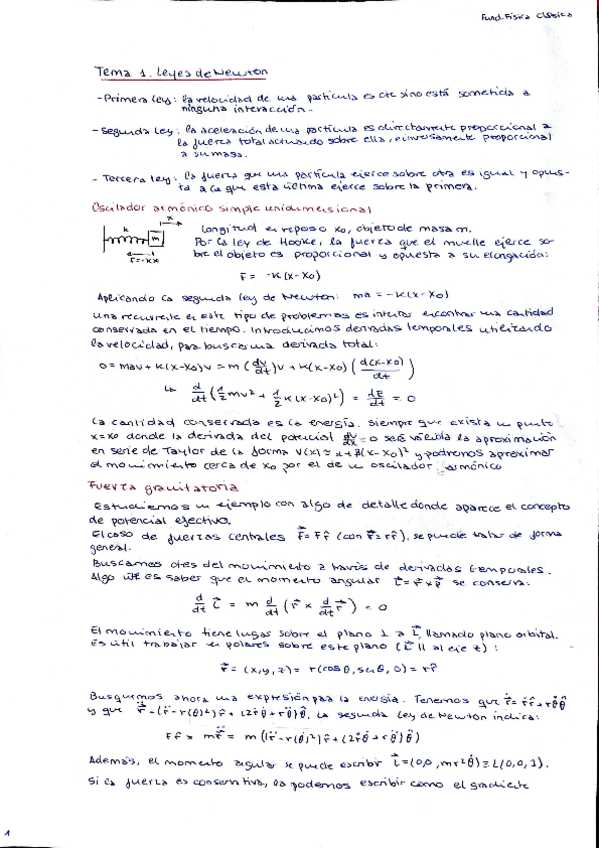 Fund. Física Clásica
Tema 1. Leyes de Newton
- Primera ley: la velocidad de una partícula es cte si no está sometida a
ninguna interacción.
- Segunda ley: la aceleración de una partícula es directamente proporcional a
la fuerza total actuando sobre ella, e inversamente proporcional
a su masa.
- Tercera ley: la fuerza que una partícula ejerce sobre otra es igual y opues-
ta a la que esta última ejerce sobre la primera.
Oscilador armónico simple unidimensional
x
k
m
F=-kx
Longitud en reposo x0, objeto de masa m.
Por la ley de Hooke, la fuerza que el muelle ejerce so-
bre el objeto es proporcional y opuesta a su elongación:
F = -k(x-x0)
Aplicando la segunda ley de Newton: ma = -k(x-x0)
Una recurrente en este tipo de problemas es intentar encontrar una cantidad
conservada en el tiempo. Introducimos derivadas temporales utilizando
la velocidad, para buscar una derivada total:
0 = mav + k(x-x0)v = m (dv/dt)v + k(x-x0) (d(x-x0)/dt)
↳ d/dt (1/2 mv² + 1/2 k(x-x0)²) = dE/dt = 0
La cantidad conservada es la energía. Siempre que exista un punto
x=x0 donde la derivada del potencial dV/dx = 0 será válida la aproximación
en serie de Taylor de la forma V(x) ≈ α+β(x-x0)² y podremos aproximar
el movimiento cerca de x0 por el de un oscilador armónico
Fuerza gravitatoria
Estudiemos un ejemplo con algo de detalle donde aparece el concepto
de potencial efectivo.
El caso de fuerzas centrales F⃗=F r̂ (con r⃗=r r̂), se puede tratar de forma
general.
Buscamos ctes del movimiento a través de derivadas temporales.
Algo útil es saber que el momento angular L⃗ = r⃗ × p⃗ se conserva:
d/dt L⃗ = m d/dt (r⃗ × d/dt r⃗) = 0
El movimiento tiene lugar sobre el plano ⊥ a L⃗, llamado plano orbital.
Es útil trabajar en polares sobre este plano (L⃗ || al eje z):
r⃗ = (x,y,z) = r(cosθ, senθ, 0) = r r̂
Busquemos ahora una expresión para la energía. Tenemos que r⃗̇ = ṙ r̂ + r θ̇ θ̂
y que r⃗̈ = (r̈ - r(θ̇)²) r̂ + (2ṙθ̇ + rθ̈) θ̂. La segunda ley de Newton indica:
F r̂ = m r⃗̈ = m ((r̈ - r(θ̇)²) r̂ + (2ṙθ̇ + rθ̈) θ̂)
Además, el momento angular se puede escribir L⃗ = (0,0,mr²θ̇) ≡ L(0,0,1).
Si la fuerza es conservativa, la podemos escribir como el gradiente
1